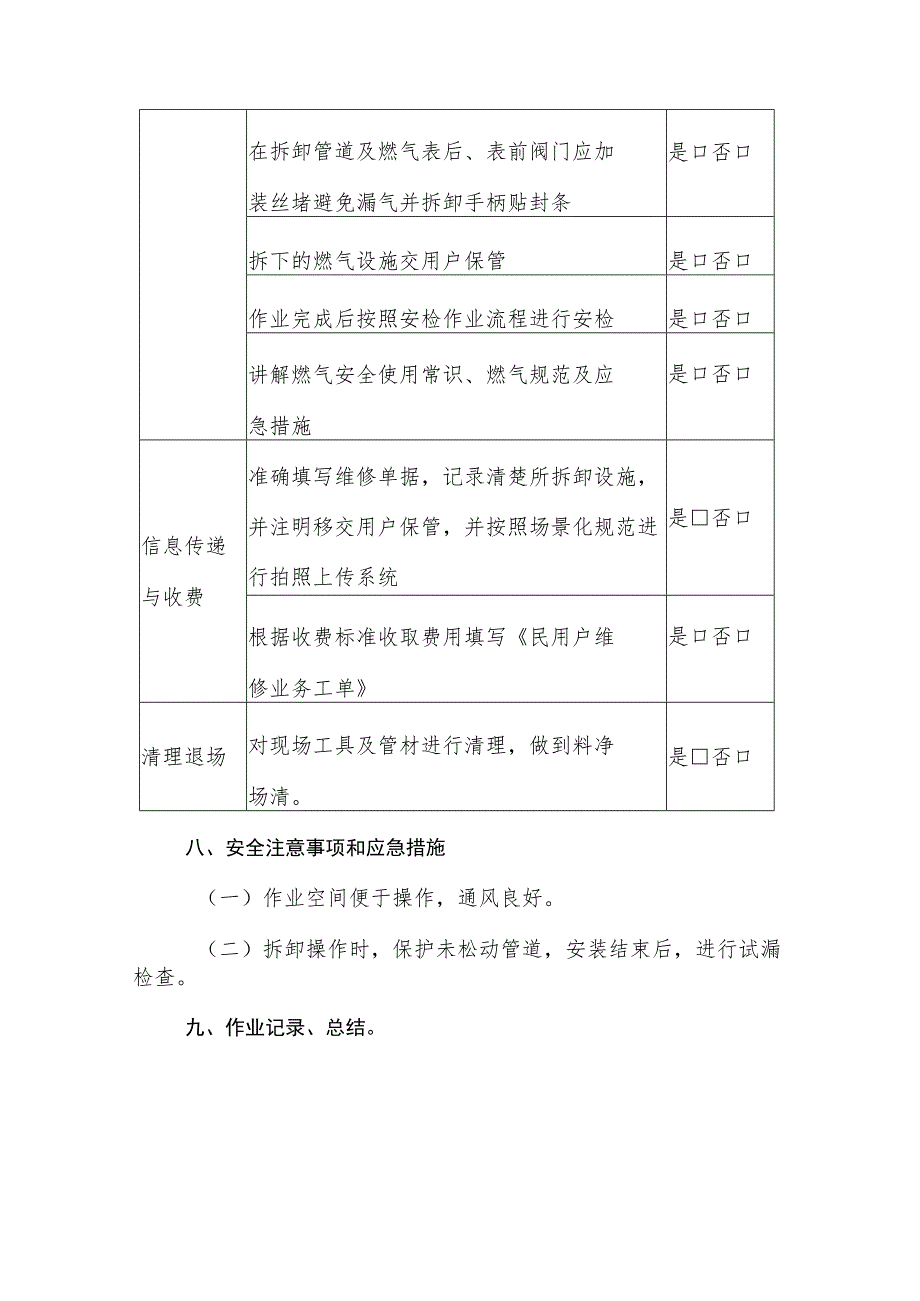 在拆卸管道及燃气表后、表前阀门应加
装丝堵避免漏气并拆卸手柄贴封条
是口否口
拆下的燃气设施交用户保管
是口否口
作业完成后按照安检作业流程进行安检
是口否口
讲解燃气安全使用常识、燃气规范及应
急措施
是口否口
信息传递
与收费
准确填写维修单据，记录清楚所拆卸设施，
并注明移交用户保管，并按照场景化规范进
行拍照上传系统
是□否口
根据收费标准收取费用填写《民用户维
修业务工单》
是口否口
清理退场
对现场工具及管材进行清理，做到料净
场清。
是□否口
八、安全注意事项和应急措施
（一）作业空间便于操作，通风良好。
（二）拆卸操作时，保护未松动管道，安装结束后，进行试漏
检查。
九、作业记录、总结。